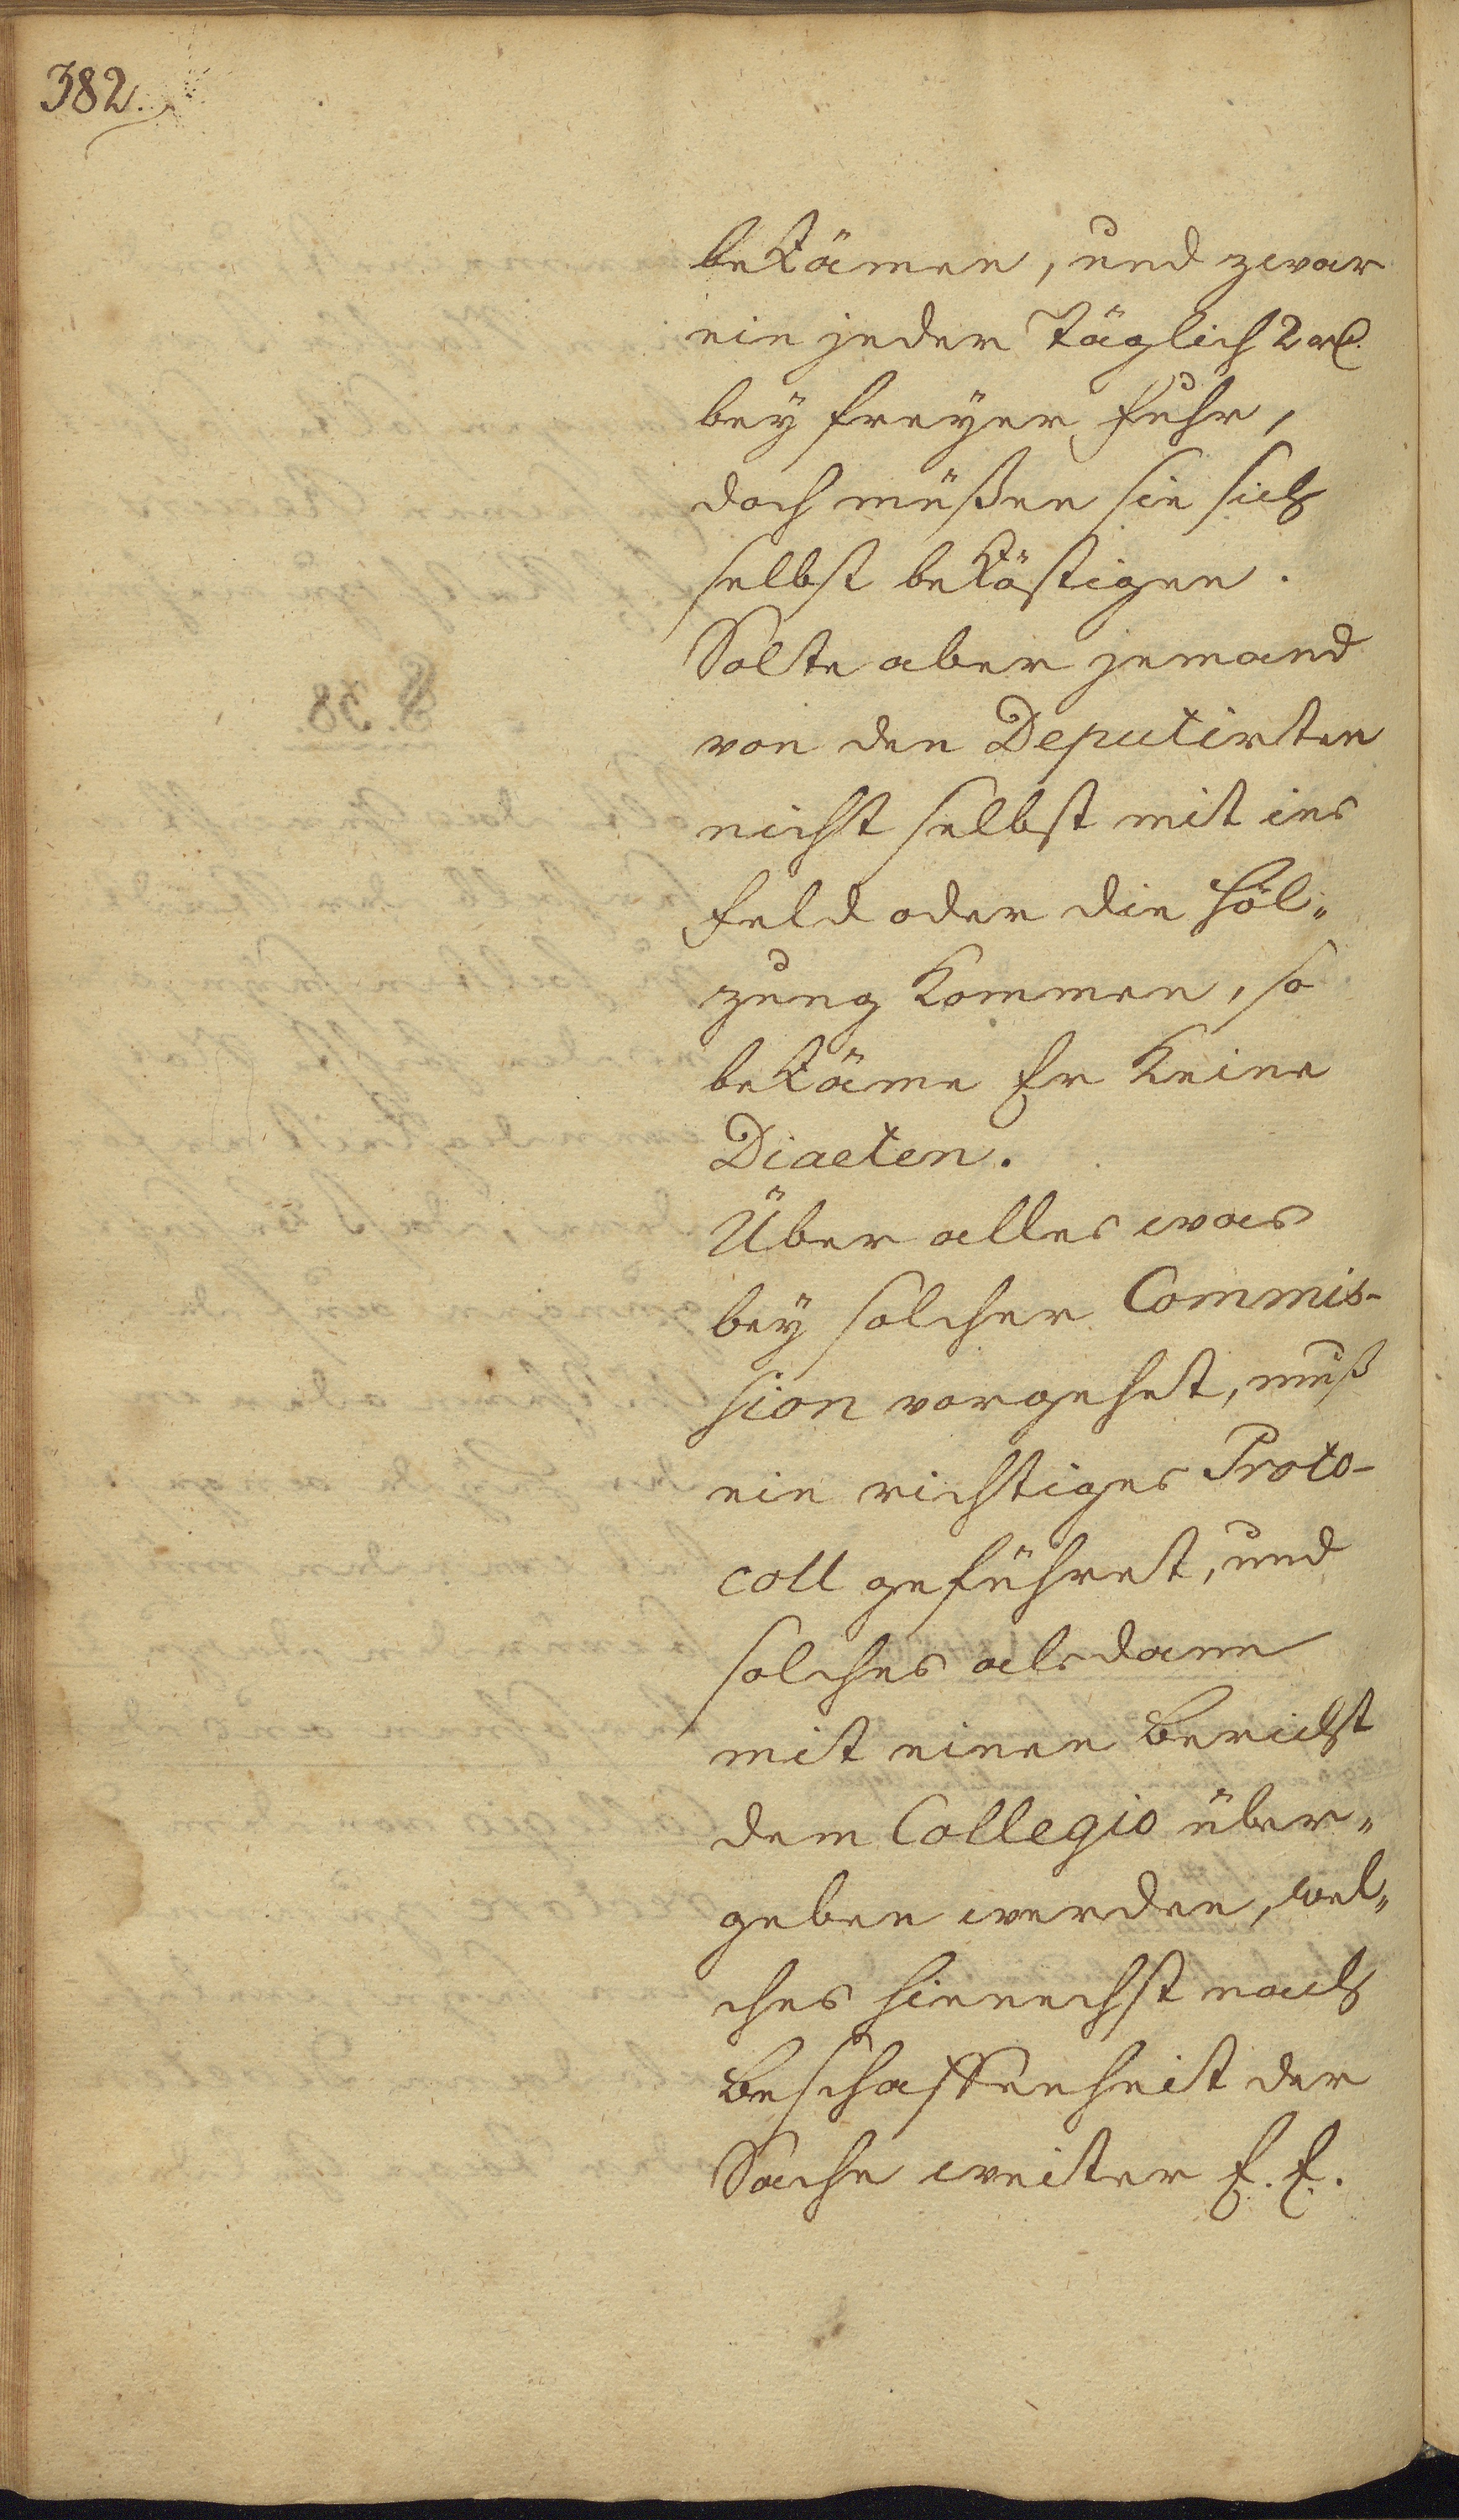 382.
bekämen, und zwar
ein jeder täglich 2 rl.
bey freyer Fuhr,
doch müßen sie sich
selbst beköstigen.
Solte aber jemand
von den Deputirten
nicht selbst mit ins
Feld oder die Höl„
zung kommen, so
bekäme Er keine
Diaeten.
Über alles was
bey solcher Commis-
sion vorgehet, muß
ein richtiges Proto-
coll geführet, und
solches alsdann
mit einen Bericht
dem Collegio über„
geben werden, wel„
ches hiernechst nach
Beschaffenheit der
Sache weiter E. E.
§. 38.